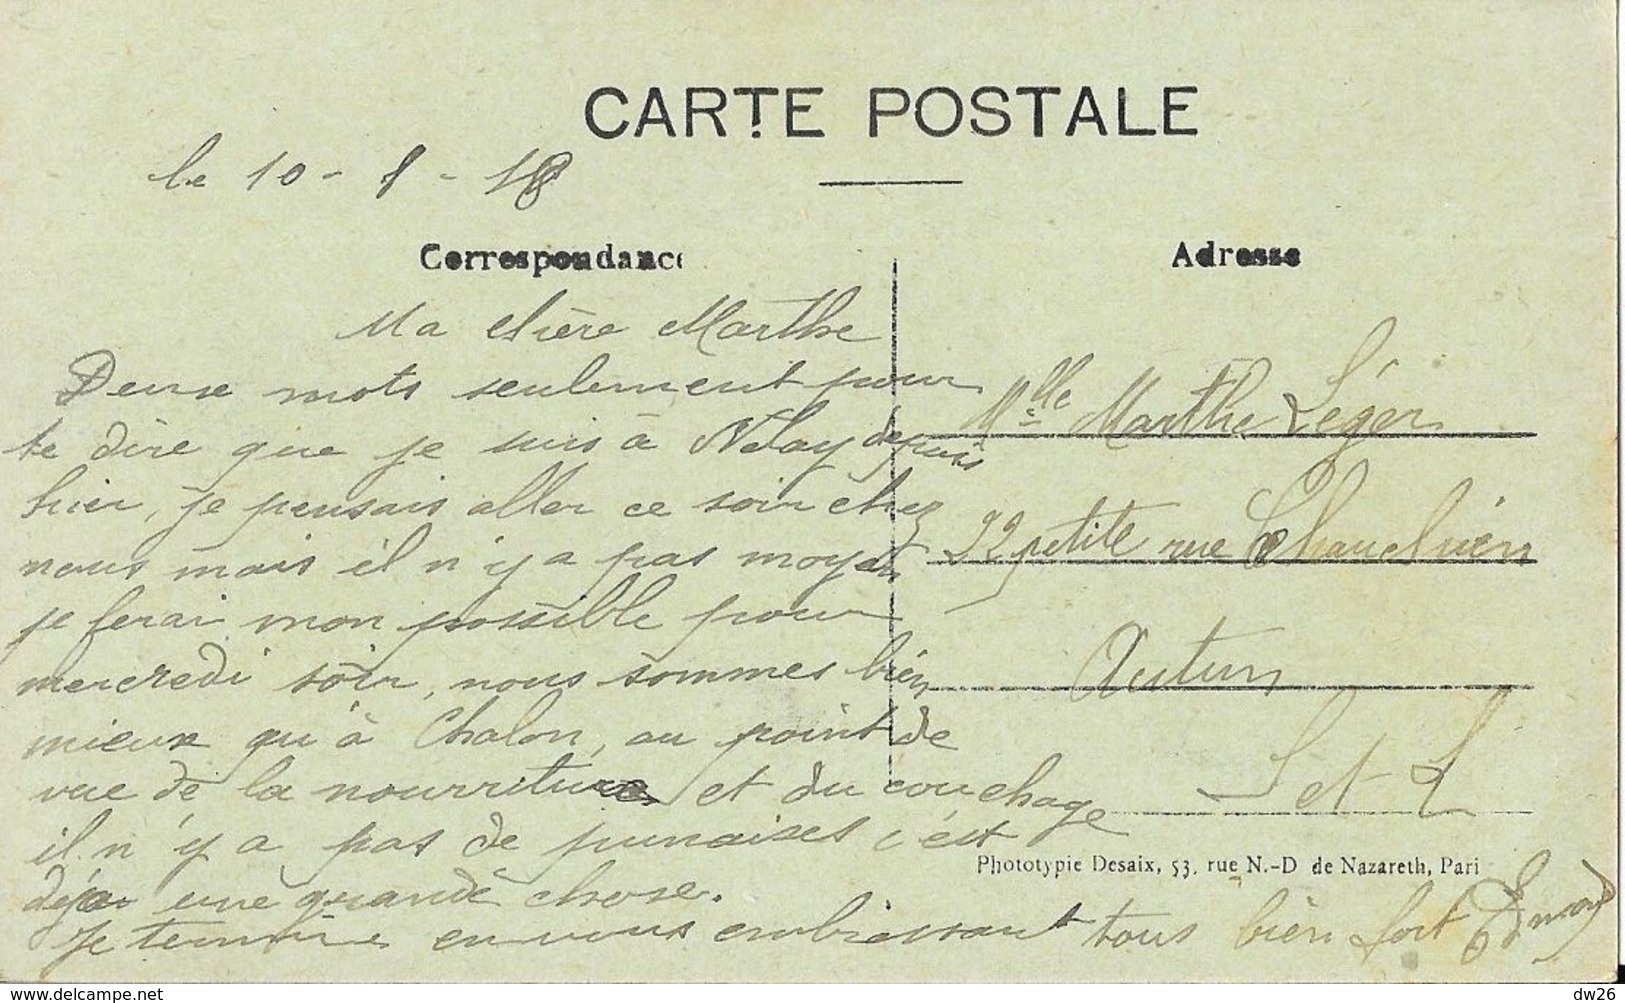 CARTE POSTALE
le 10 - 8 - 18
Correspondance
Adresse
Ma chère Marthe
Deux mots seulement pour
te dire que je suis à Nolay depuis
hier, je pensais aller ce soir chez
nous mais il n'y a pas moyen
je ferai mon possible pour
mercredi soir, nous sommes bien
mieux qu'à Chalon, au point de
vue de la nourriture et du couchage
il n'y a pas de punaises c'est
déja une grande chose.
Je termine en vous embrassant tous bien fort Edmond
Mlle Marthe Léger
22 petite rue Chauchien
Autun
S et L
Phototypie Desaix, 53, rue N.-D de Nazareth, Pari
delcampe.net
dw26